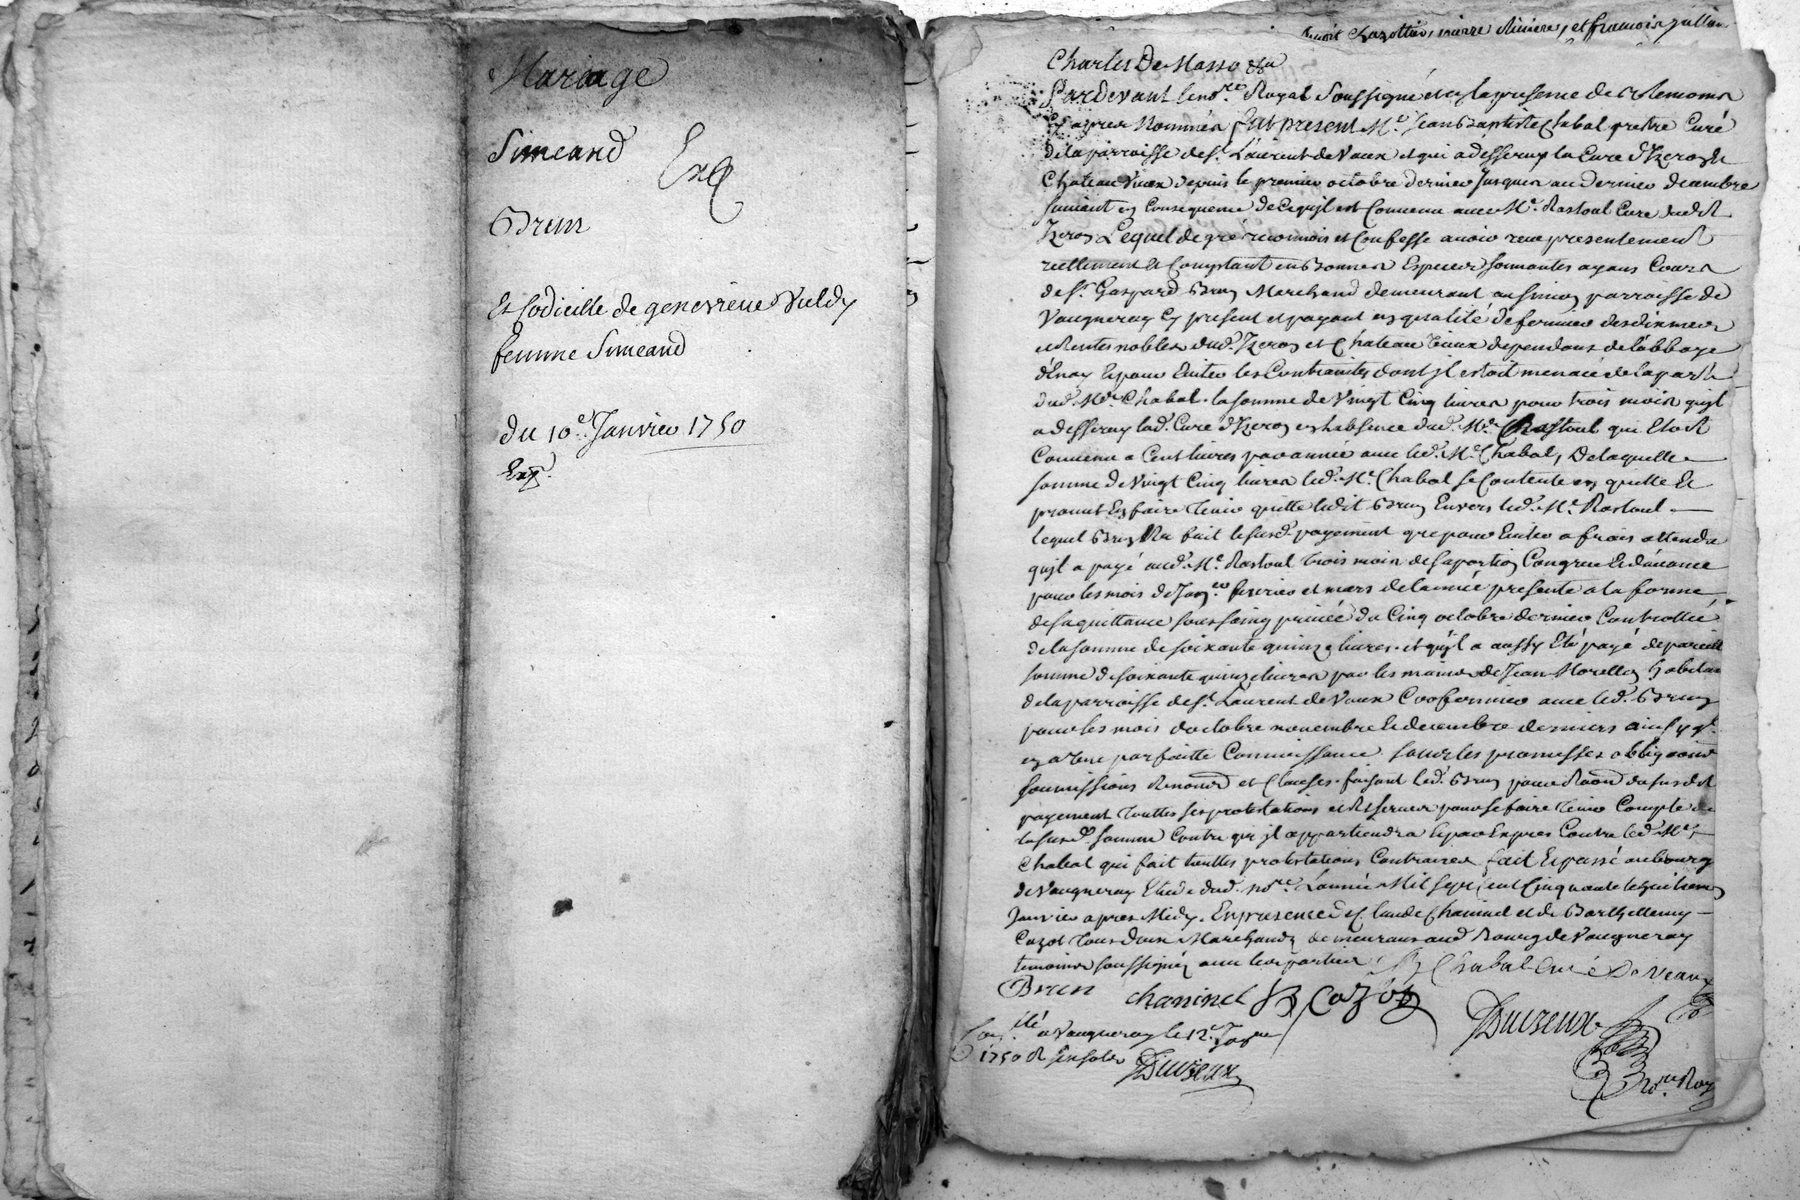 Mariage
Simeand
Exp
Brun
Et codicille de genevieve Vuldy
femme Simeand
du 10e Janvier 1750
Exp.
Benoit Chazottier, pierre Riviere, et francois Jullien
Charles De Masso &a
Pardevant le nore. Royal Soussigné et en la presence des temoins
Cy apres Nommés fut present Me. Jean Baptiste Chabal prestre Curé
de la parroisse de St. Laurent de Vaux et qui a desservy la Cure d'Izeron &
Chateau Vieux depuis le premier octobre dernier Jusques au dernier decembre
suivant en Consequence de ce qu'il est Convenu avec Me. Rastoul Curé dud.
Izeron Lequel de gré reconnois et Confesse avoir receu presentement
reellement et Comptant en Bonnes Especes sonnantes ayans Cours
de Sr. Gaspard Brun Marchand demeurant au Simon parroisse de
Vaugneray Cy present et payant en qualité de fermier des dixmes
et Rentes nobles dud. Izeron et Chateau vieux dependans de l'abbaye
d'Enay Et pour Eviter les Contraintes dont jl estoit menacé de la part
dud. Me. Chabal la somme de Vingt Cinq livres pour trois mois qu'jl
a desservy lad. Cure d'Izeron en l'absence dud. Me. Rastoul qui Etoit
Convenu a Cent livres par année avec led. Me. Chabal, De laquelle
somme de Vingt Cinq livres led. Me. Chabal se Contente en quitte Et
promet En faire tenir quitte ledit Brun Envers led. Me. Rastoul
lequel Brun Na fait le susd. payement que pour Eviter a frais attendu
qu'jl a payé aud. Me. Rastoul trois mois de sa portion Congrue et d'avance
pour les mois de Janer. fevrier et mars de l'année presente a la forme
de sa quittance sous seing privée du Cinq octobre dernier Controllée
de la somme de soixante quinze livres et qu'jl a aussy Eté payé de pareille
somme de soixante quinze livres par les mains de Jean Morellon habitant
de la parroisse de St. Laurent de Vaux Coofermier avec led. Brun
pour les mois d'octobre novembre et decembre derniers ainsy qu'
en a eu parfaitte Connoissance sous les promesses obligaons
soumissions Renonons et Clauses faisant led. Brun pour Raon du susdit
payement touttes ses protestations et Reserves pour se faire tenir Compte de
la susd. somme Contre qui jl appartiendra et par Exprès Contre led. Me.
Chabal qui fait touttes protestations Contraires fait Et passé au bourg
de Vaugneray Etude dud. nore. L'année Mil sept Cent Cinquante le huitieme
Janvier apres Midy. En presence de Claude Chaninel et de Barthellemy
Cozot tous deux Marchands demeurans aud. Bourg de Vaugneray
temoins soussignés avec les parties
Chabal Curé De Veaux
Brun chaninel B Cozot
Duizeux
Conlé. a Vaugneray le 12e. Janer
1750 R six sols
Duizeux
nore Roy